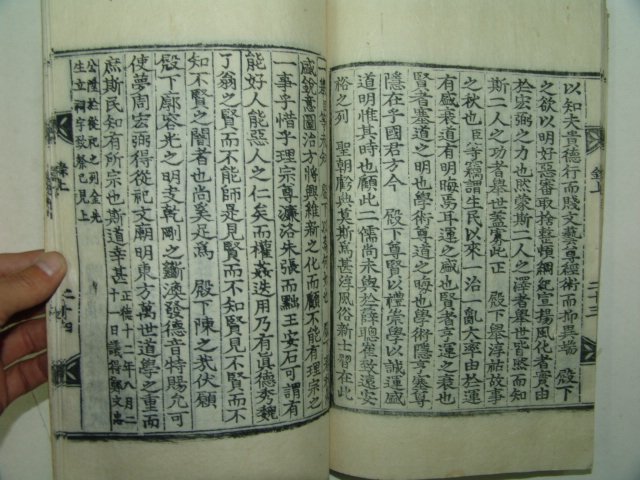 以知夫貴德行而賤文藝尊經術而抑異端 殿下
之欲以明好惡審取捨整頓綱紀宣揚風化者實由
於宏弼之力也然蒙斯二人之澤者舉世皆然而知
斯二人之功者舉世蓋寡此正 殿下舉淳祐故事
之秋也臣等竊謂生民以來一治一亂大率由於運
有盛衰道有明晦焉耳運之盛也賢者亨運之衰也
賢者塞道之明也學術尊道之晦也學術隱亨塞尊
隱在乎國君方今 殿下尊賢以禮崇學以誠運盛
道明惟其時也顧此二儒尚未與於薛聰崔致遠安
裕之列 聖朝虧典莫斯爲甚淳風俗新士習在此
錄上 二十三
盛敦意圖治方將興維新之化而顧不能有理宗之
一事乎惜乎理宗尊濂洛朱張而黜王安石可謂有
能好人能惡人之仁矣而權姦迭用乃有眞德秀魏
了翁之賢而不能師是見賢而不知賢見不賢而不
知不賢之闇者也尚奚足爲 殿下陳之哉伏願
殿下廓容光之明支乾剛之斷渙發德音特賜允可
使夢周宏弼得從祀文廟明東方萬世道學之重而
庶斯民知有所宗也斯道幸甚 正德十二年八月二十一日議得鄭文忠
公陞於從祀之列金先生立祠宇致祭已見上
錄上